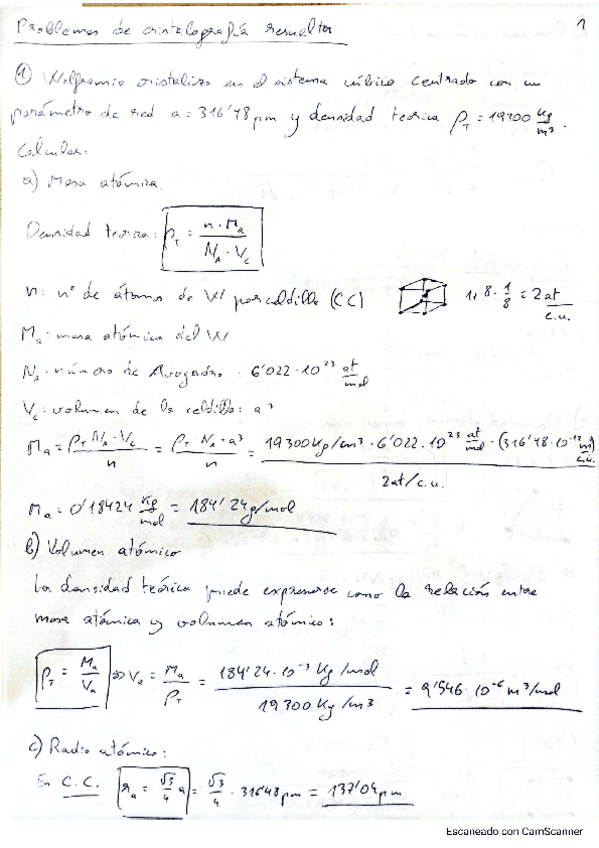 Problemas de cristalografía resueltos
1
① Wolframio cristaliza en el sistema cúbico centrado con un
parámetro de red a = 316'48 pm y densidad teórica ρ_T = 19300 kg/m³.
Calcular:
a) Masa atómica.
Densidad teórica: ρ_T = n · M_a / N_A · V_c
n: nº de átomos de W por celdilla (CC) 1 + 8 · 1/8 = 2 at/c.u.
M_a: masa atómica del W
N_A: número de Avogadro: 6'022 · 10²³ at/mol
V_c: volumen de la celdilla: a³
M_a = ρ_T N_A · V_c / n = ρ_T N_A · a³ / n = 19300 Kg/m³ · 6'022 · 10²³ at/mol · (316'48 · 10⁻¹² m)³/c.u. / 2 at/c.u.
M_a = 0'18424 kg/mol = 184'24 g/mol
b) Volumen atómico
La densidad teórica puede expresarse como la relación entre
masa atómica y volumen atómico:
ρ_T = M_a / V_a ⇒ V_a = M_a / ρ_T = 184'24 · 10⁻³ Kg/mol / 19300 Kg/m³ = 9'546 · 10⁻⁶ m³/mol
c) Radio atómico:
En C.C. r_a = √3/4 a = √3/4 · 316'48 pm = 137'04 pm
Escaneado con CamScanner